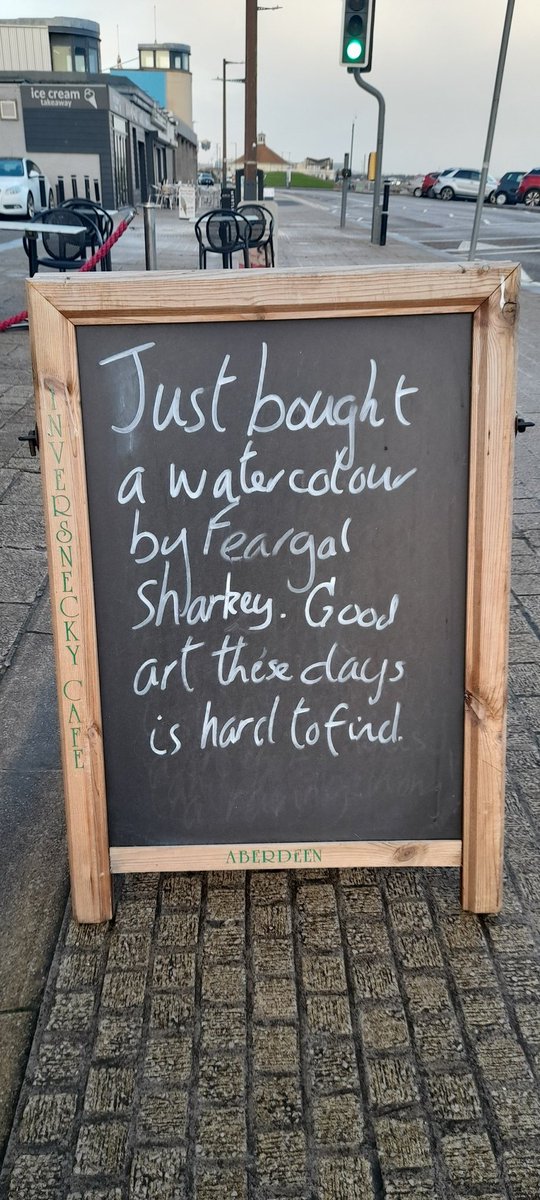 ice cream
takeaway
Just bought
a watercolour
by Feargal
Sharkey. Good
art these days
is hard to find.
INVERSNECKY CAFE
ABERDEEN